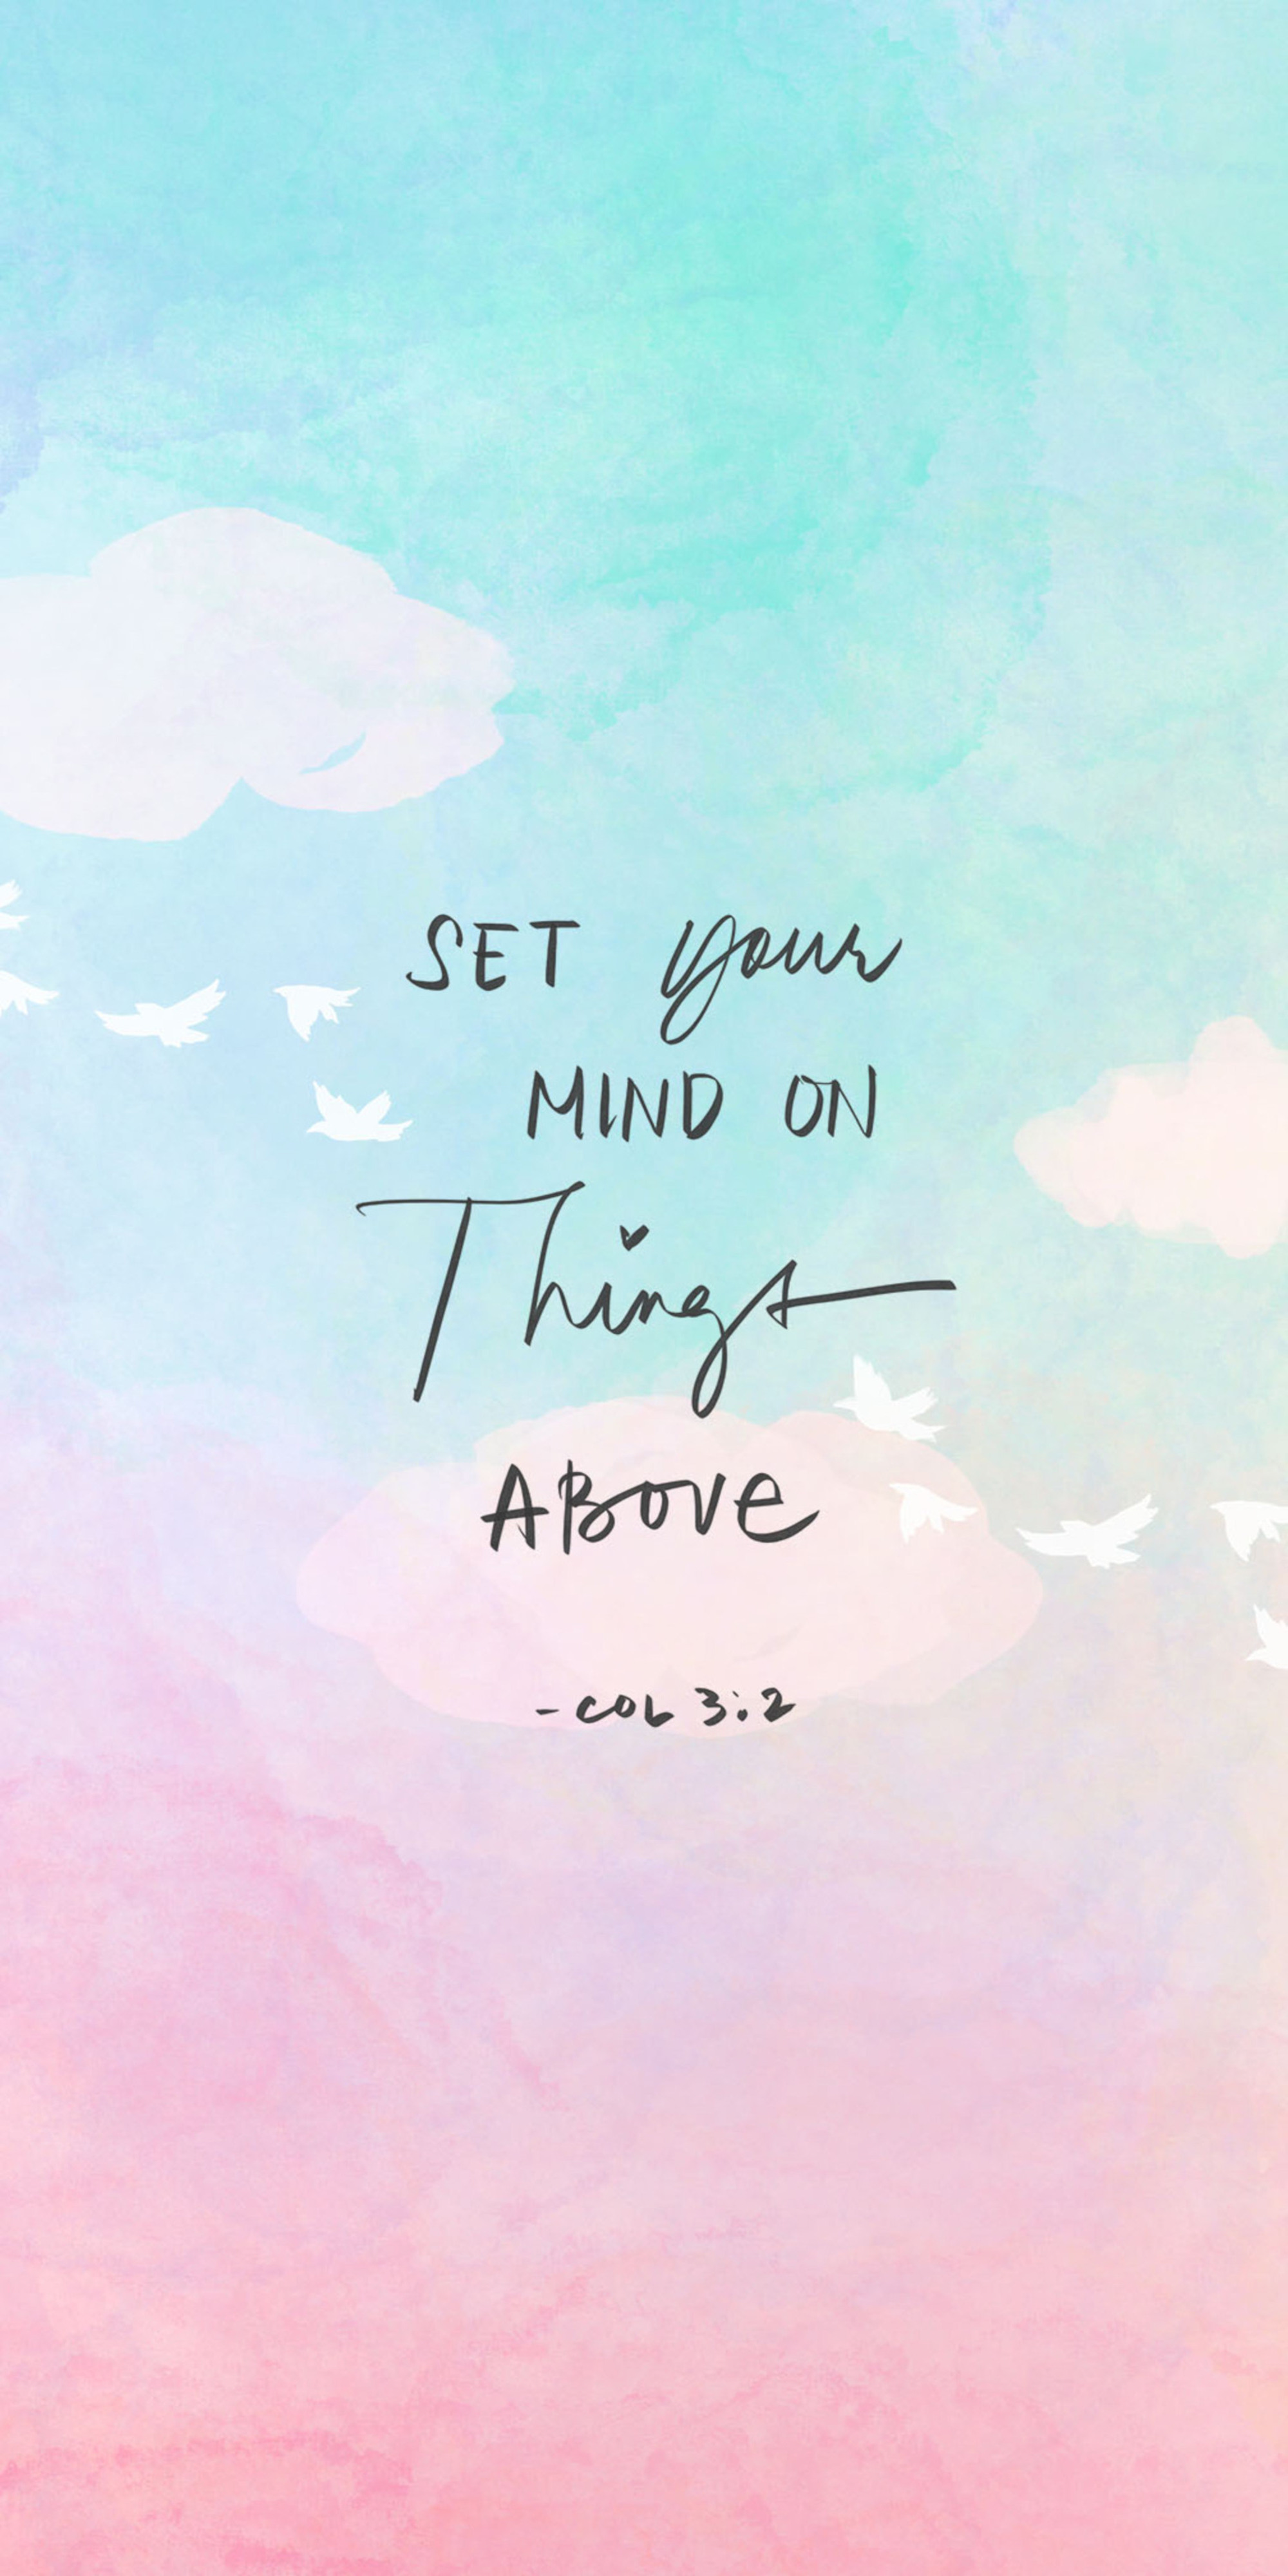 SET your
MIND ON
Things
ABOVE
- COL 3:2